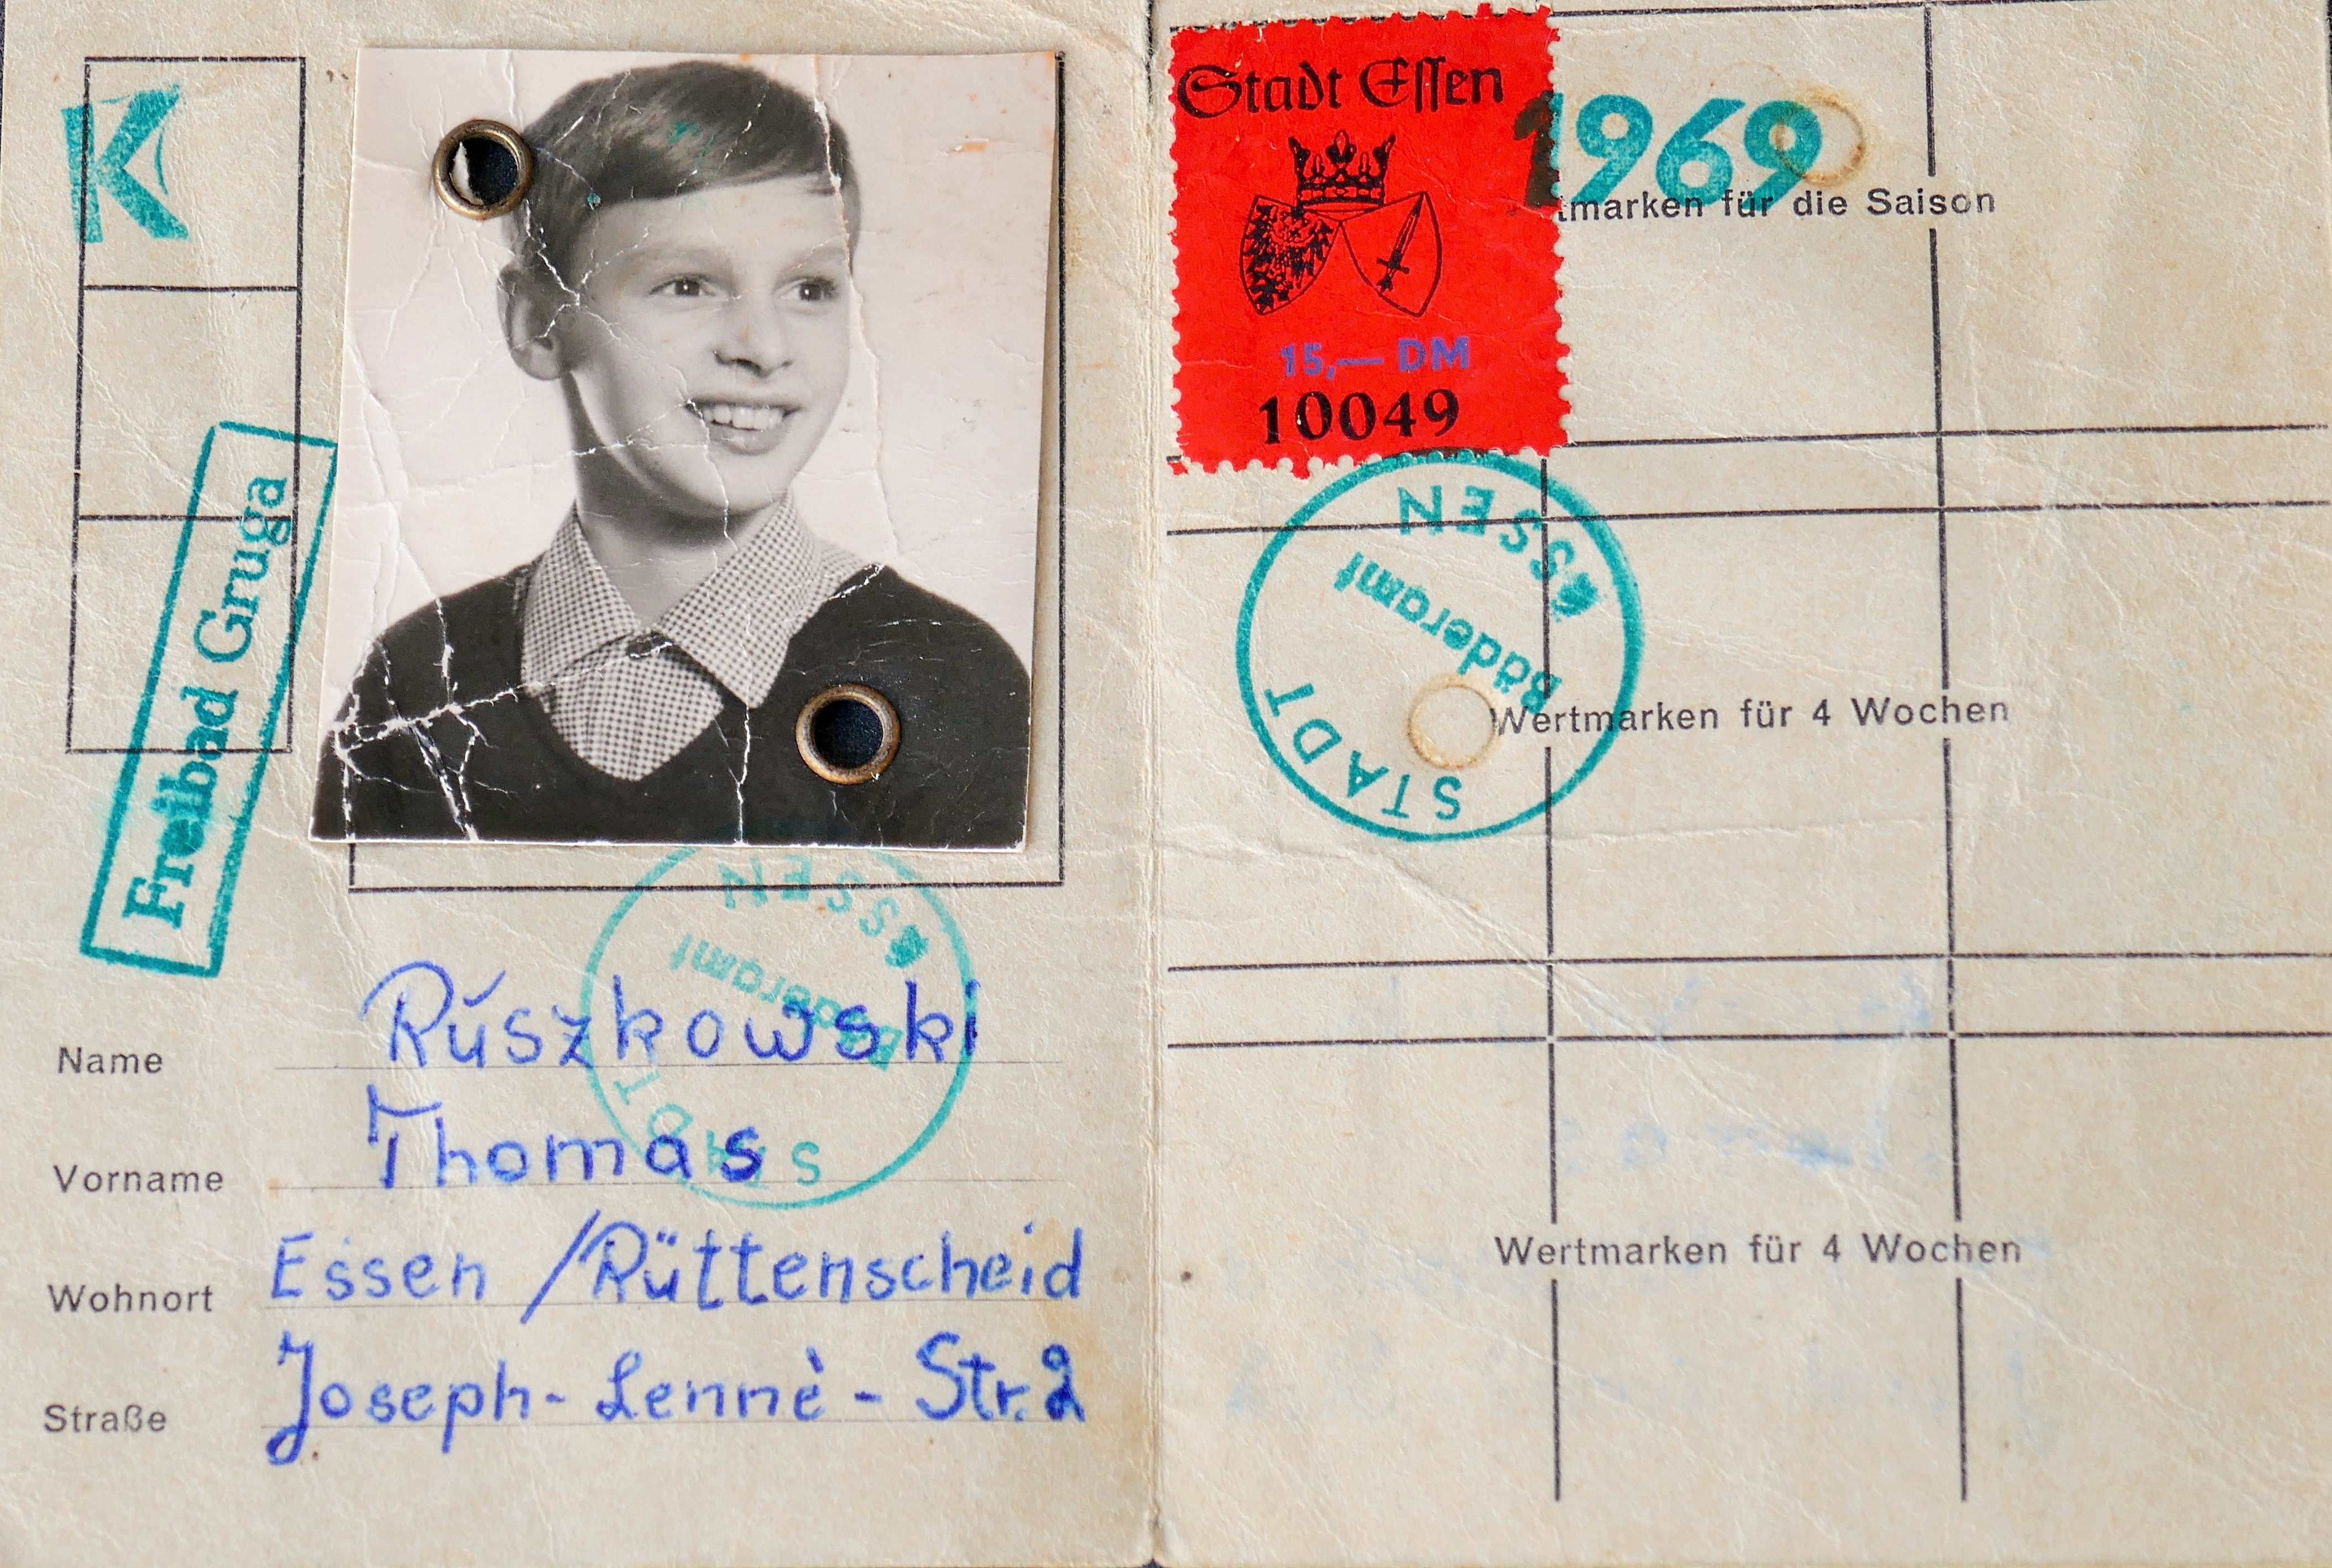 K
Freibad Gruga
STADT ESSEN
Bäderamt
Name Ruszkowski
Vorname Thomas
Wohnort Essen /Rüttenscheid
Straße Joseph-Lennè-Str. 2
Stadt Essen
15,— DM
10049
1969
tmarken für die Saison
STADT ESSEN
Bäderamt
Wertmarken für 4 Wochen
Wertmarken für 4 Wochen